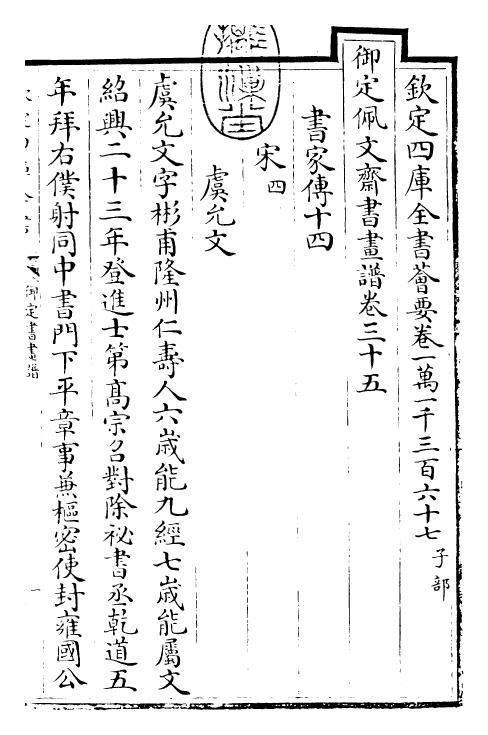 欽定四庫全書薈要卷一萬一千三百六十七 子部
御定佩文齋書畫譜卷三十五
書家傳十四
宋四
虞允文
虞允文字彬甫隆州仁壽人六歲能九經七歲能屬文
紹興二十三年登進士第髙宗召對除祕書丞乾道五
年拜右僕射同中書門下平章事兼樞密使封雍國公
御定書畫譜
一